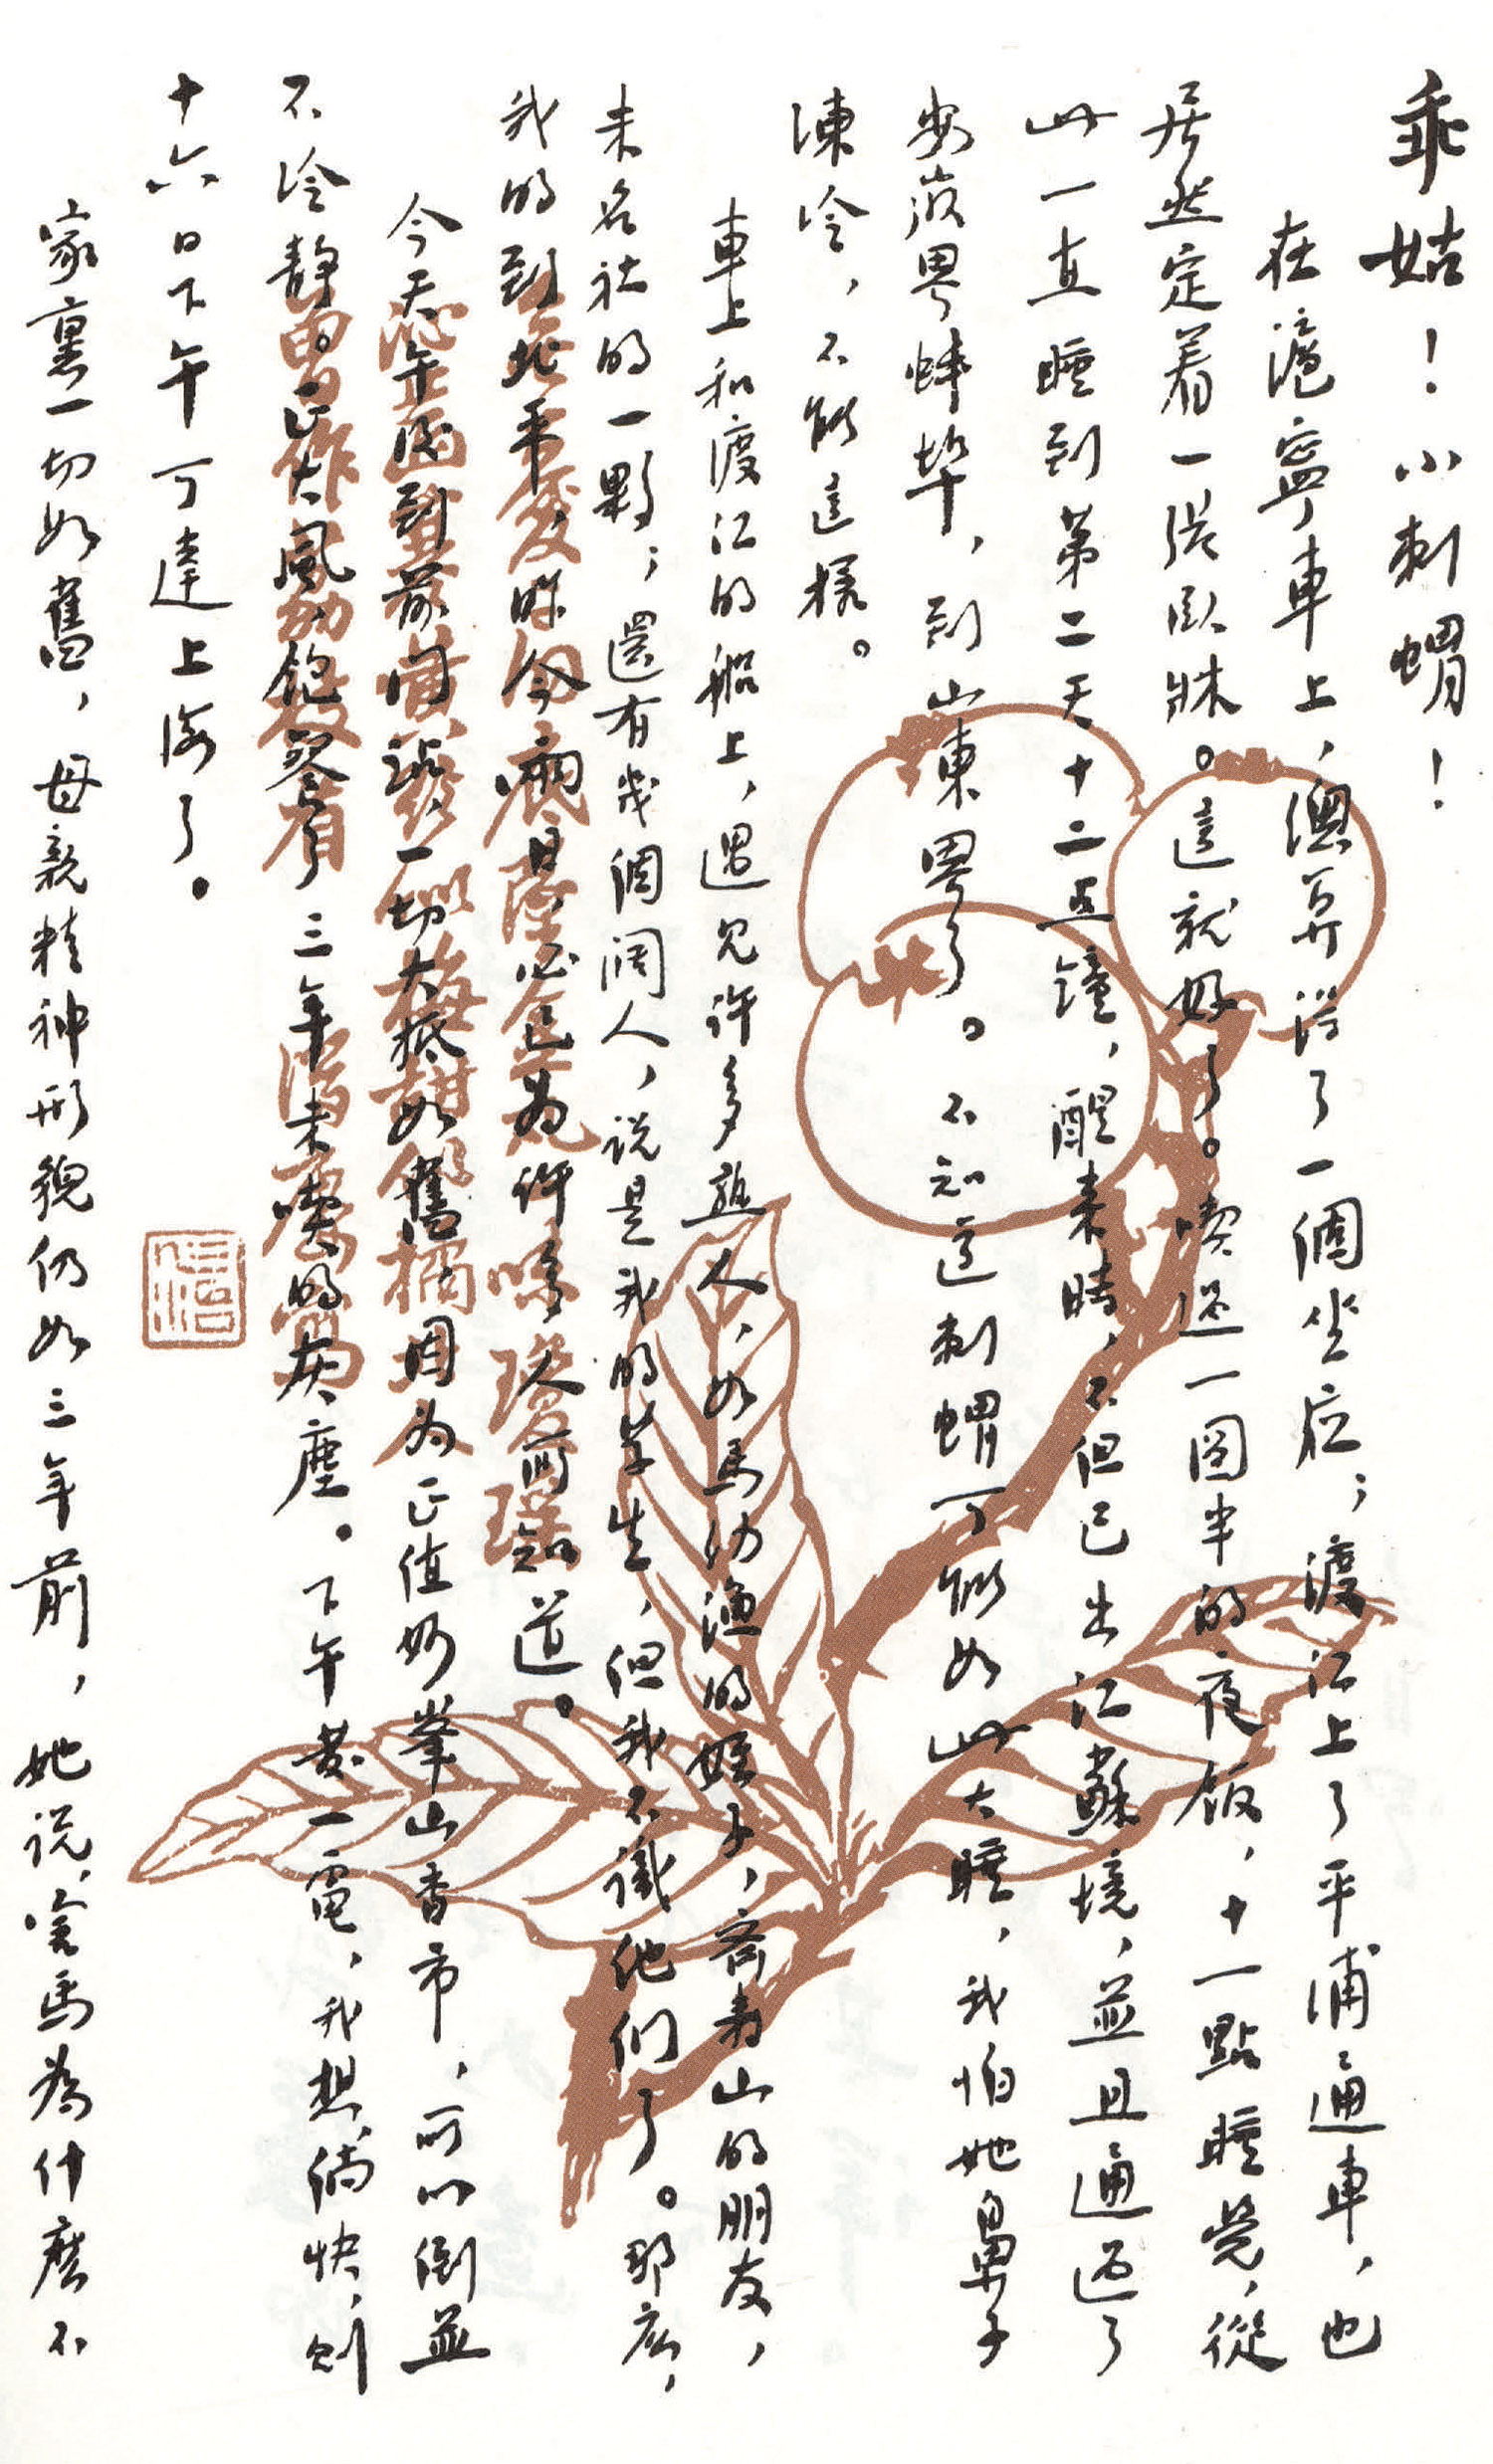 乖姑！小刺蝟！
在滬寧車上，總算得了一個坐位；渡江上了平浦通車，也
居然定着一張臥牀。這就好了。喫過一圓半的夜飯，十一點睡覺，從
此一直睡到第二天十二點鐘，醒來時，不但已出江蘇境，並且通過了
安徽界蚌埠，到山東界了。不知道刺蝟可能如此大睡，我怕她鼻子
凍冷，不能這樣。
車上和渡江的船上，遇見許多熟人，如馬幼漁的姪子，齊壽山的朋友，
未名社的一夥；還有幾個闊人，说是我的學生，但我不識他们了。那麼，
我的到北平，昨今兩日，必已為许多人所知道。
今天午後到前门站，一切大抵如舊，因为正值妙峯山香市，所以倒並
不冷靜。正大風，飽餐了三年未喫的灰塵。下午發一電，我想，倘快，則
十六日下午可達上海了。
家裏一切如舊，母親精神形貌仍如三年前，她说，害馬為什麼不